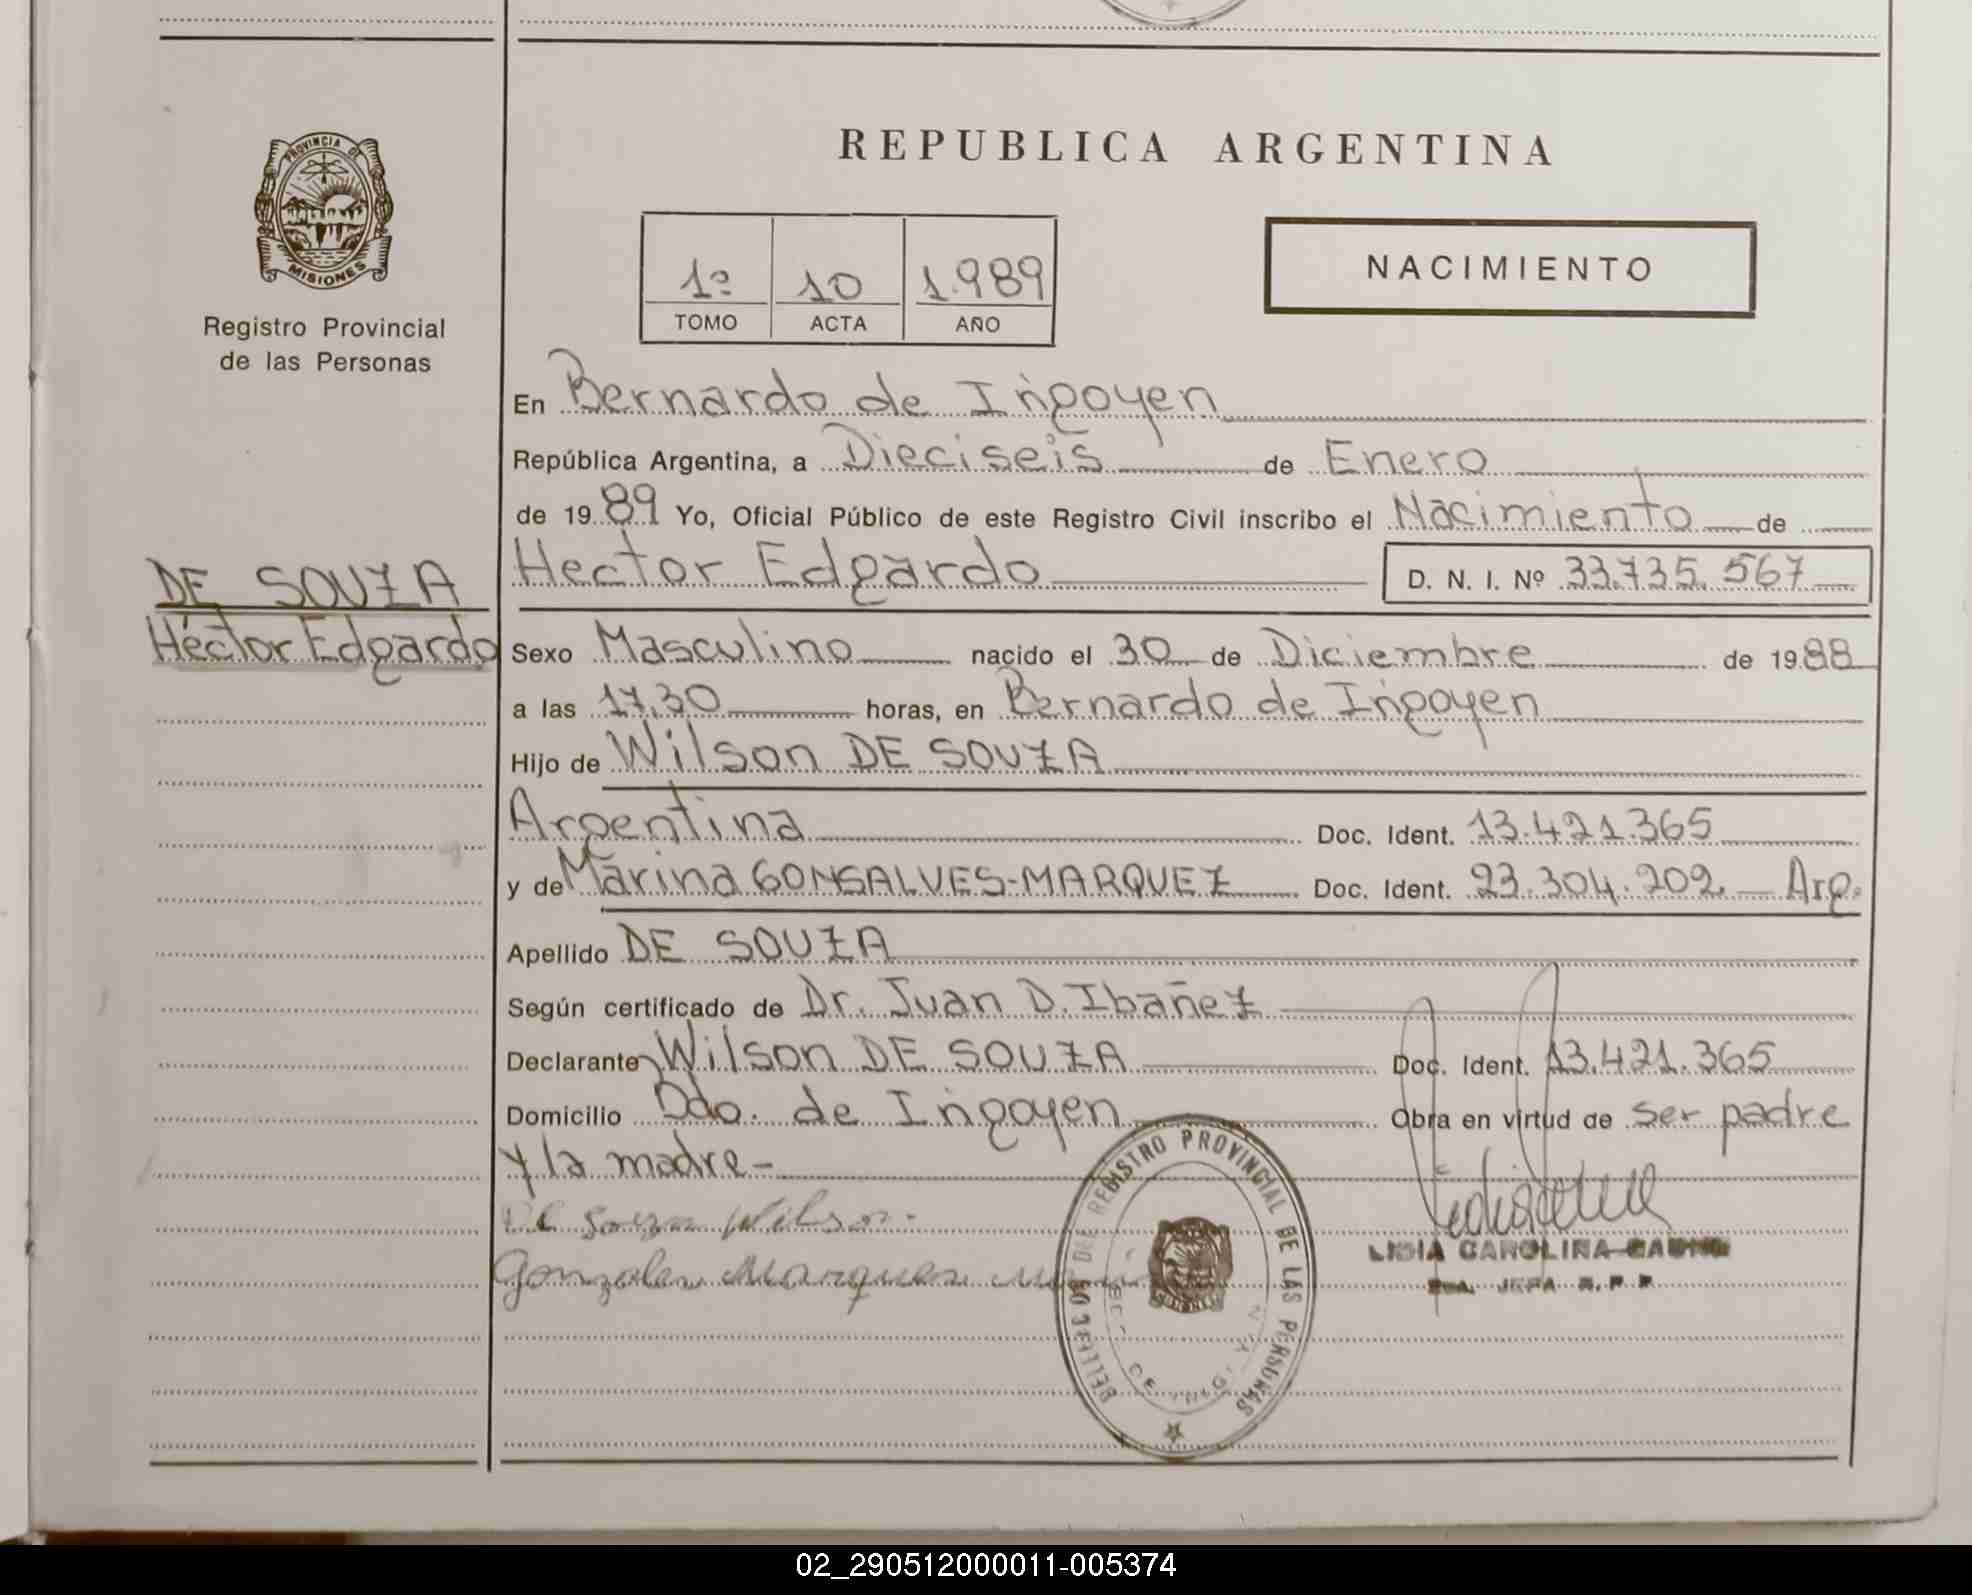 REPUBLICA ARGENTINA
PROVINCIA DE
MISIONES
Registro Provincial
de las Personas
1º 10 1.989
TOMO ACTA AÑO
NACIMIENTO
En Bernardo de Irigoyen
República Argentina, a Dieciseis de Enero
de 1989 Yo, Oficial Público de este Registro Civil inscribo el Nacimiento de
Hector Edgardo D. N. I. Nº 33.735.567
DE SOUZA
Héctor Edgardo
Sexo Masculino nacido el 30 de Diciembre de 1988
a las 17,30 horas, en Bernardo de Irigoyen
Hijo de Wilson DE SOUZA
Argentina Doc. Ident. 13.421.365
y de Marina GONSALVES-MARQUEZ Doc. Ident. 23.304.202. Arg.
Apellido DE SOUZA
Según certificado de Dr. Juan D. Ibañez
Declarante Wilson DE SOUZA Doc. Ident. 13.421.365
Domicilio Bdo. de Irigoyen Obra en virtud de ser padre
y la madre-
De Souza Wilson.
Gonzales Marques
REGISTRO PROVINCIAL DE LAS PERSONAS
LIDIA CAROLINA
JEFA R.P.P
02_290512000011-005374